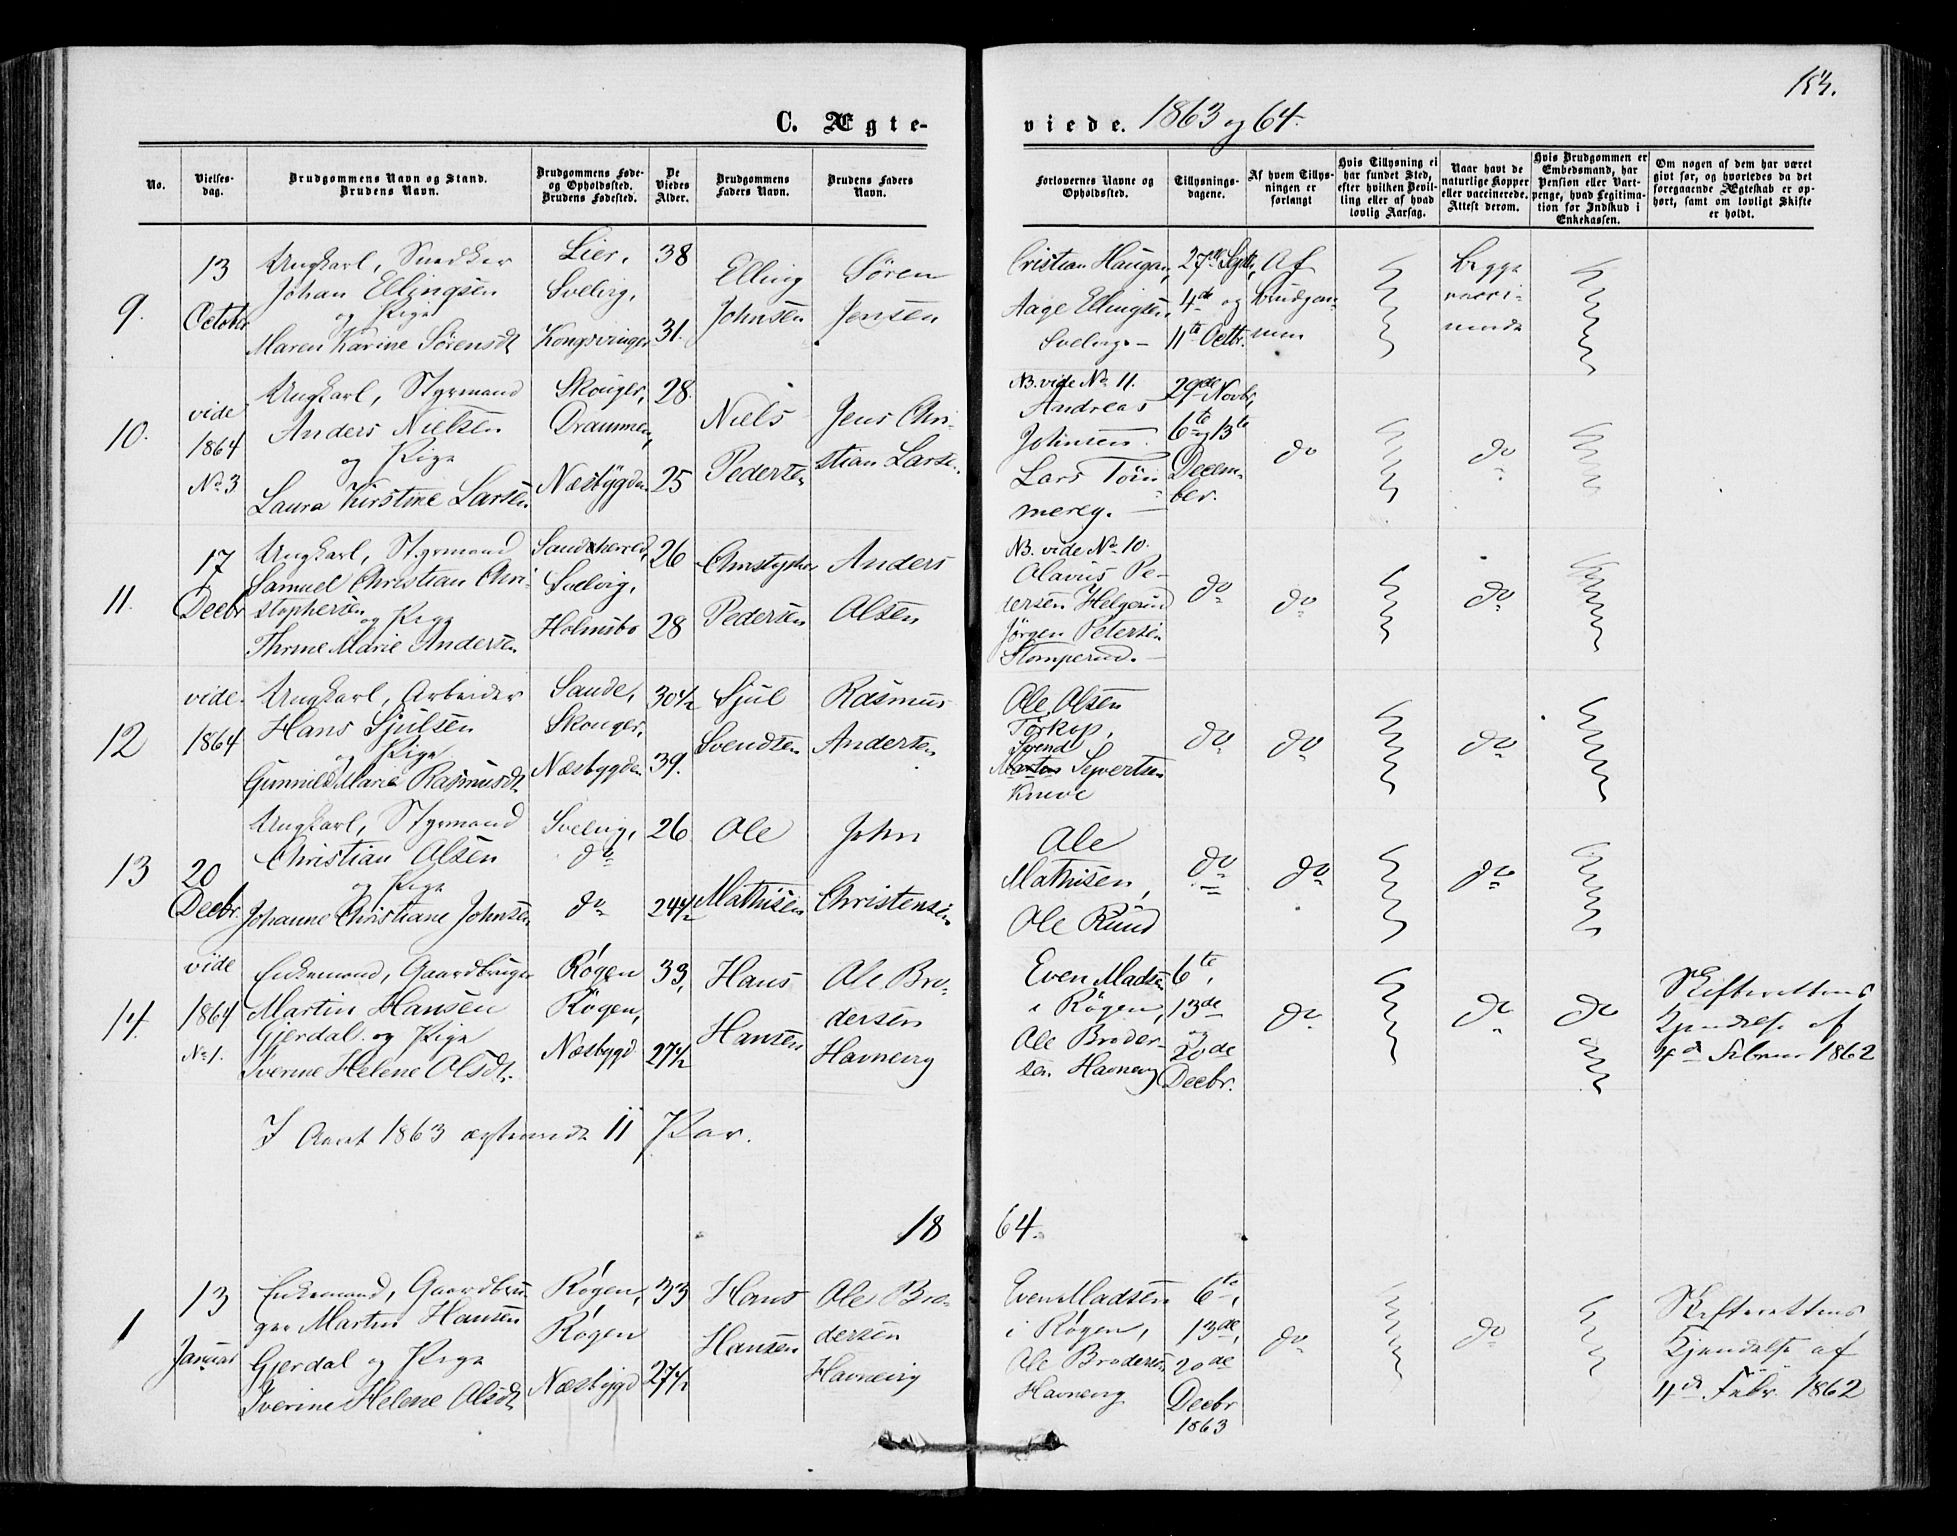 153.
C. Ægteviede. 1863 og 64.
No.
Vielses-
dag.
Brudgommens Navn og Stand.
Brudens Navn.
Brudgommens Føde-
og Opholdssted.
Brudens Fødested.
De
Viedes
Alder.
Brudgommens
Faders Navn.
Brudens Faders
Navn.
Forlovernes Navne og
Opholdssted.
Tillysnings-
dagene.
Af hvem Tillys-
ningen er
forlangt
Hvis Tillysning ei
har fundet Sted,
efter hvilken Bevil-
ling eller af hvad
lovlig Aarsag.
Naar havt de
naturlige Kopper
eller vaccinerede.
Attest derom.
Hvis Brudgommen er
Embedsmand, har
Pension eller Vart-
penge, hvad Legitima-
tion for Indskud i
Enkekassen.
Om nogen af dem har været
givt før, og hvorledes da det
foregaaende Ægteskab er op-
hørt, samt om lovligt Skifte
er holdt.
9.
13
Octobr
Ungkarl, Snedker
Johan Ellingsen
og Pige
Maren Karine Sørensdt
Lier,
Svelvig,
Kongsvinger
38
31.
Elling
Johnsen
Søren
Jensen
Cristian Haugan,
Aage Ellingsen,
Svelvig. -
27de Septbr,
4de og
11te Octbr.
Af
Brudgom-
men
Begge
vacci-
nerede
10.
vide
1864
No 3
Ungkarl, Styrmand
Anders Nielsen
og Pige
Laura Kirstine Larsen
Skouger,
Drammen,
Næsbygden
28.
25
Niels
Pedersen
Jens Chri-
stian Larsen.
NB. vide No 11.
Andreas
Johnsen.
Lars Tøm-
mereg. -
29de Novbr,
6te og 13te
Decem-
ber.
do
do
11.
17
Decbr
Ungkarl, Styrmand
Samuel Christian Chri-
stophersen
og Pige
Thrine Marie Andersen
Sandeherred,
Svelvig,
Holmsbo
26
28
Christopher
Pedersen
Anders
Olsen
NB. vide No 10.
Olavus Pe-
tersen Helgerud
Jørgen Petersen
Stomperud. -
do
do
do
12
vide
1864
Ungkarl, Arbeider
Hans Sjulsen
og Pige
Gunnild Marie Rasmusdt
Sande,
Skouger,
Næsbygden
30 1/2
39.
Sjul
Svendsen
Rasmus
Andersen
Ole Olsen
Torkop,
Svend
Severtsen
Knive
do
do
do
13
20
Decbr.
Ungkarl, Styrmand
Christian Olsen
og Pige
Johanne Christiane Johnsen
Svelvig,
do
do
26
24 1/2
Ole
Mathisen
John
Christensen
Ole
Mathisen,
Ole Ruud
do
do
do
14.
vide
1864
No 1.
Enkemand, Gaardbruger
Martin Hansen
Gjerdal og Pige
Iverine Helene Olsdt.
Røgen
Røgen,
Næsbygd
33,
27 1/2
Hans
Hansen
Ole Bro-
dersen
Havnevig
Even Madsen
i Røgen,
Ole Broder-
sen Havnevig
6te,
13de
og
20de
Decbr.
do
do
do
Skifterettens
Kjendelse af
4de Februar 1862
I Aaret 1863 ægteviede 11 Par.
1864.
1
13
Januar
Enkemand, Gaardbru-
ger Martin Hansen
Gjerdal og Pige
Iverine Helene Olsdt
Røgen,
Røgen
Næsbygd
33
27 1/2
Hans
Hansen
Ole Bro-
dersen
Havnevig
Even Madsen
i Røgen,
Ole Brodersen
Havnevig
6te,
13de,
20de
Decbr
1863
do
do
Skifterettens
Kjendelse af
4de Febr. 1862